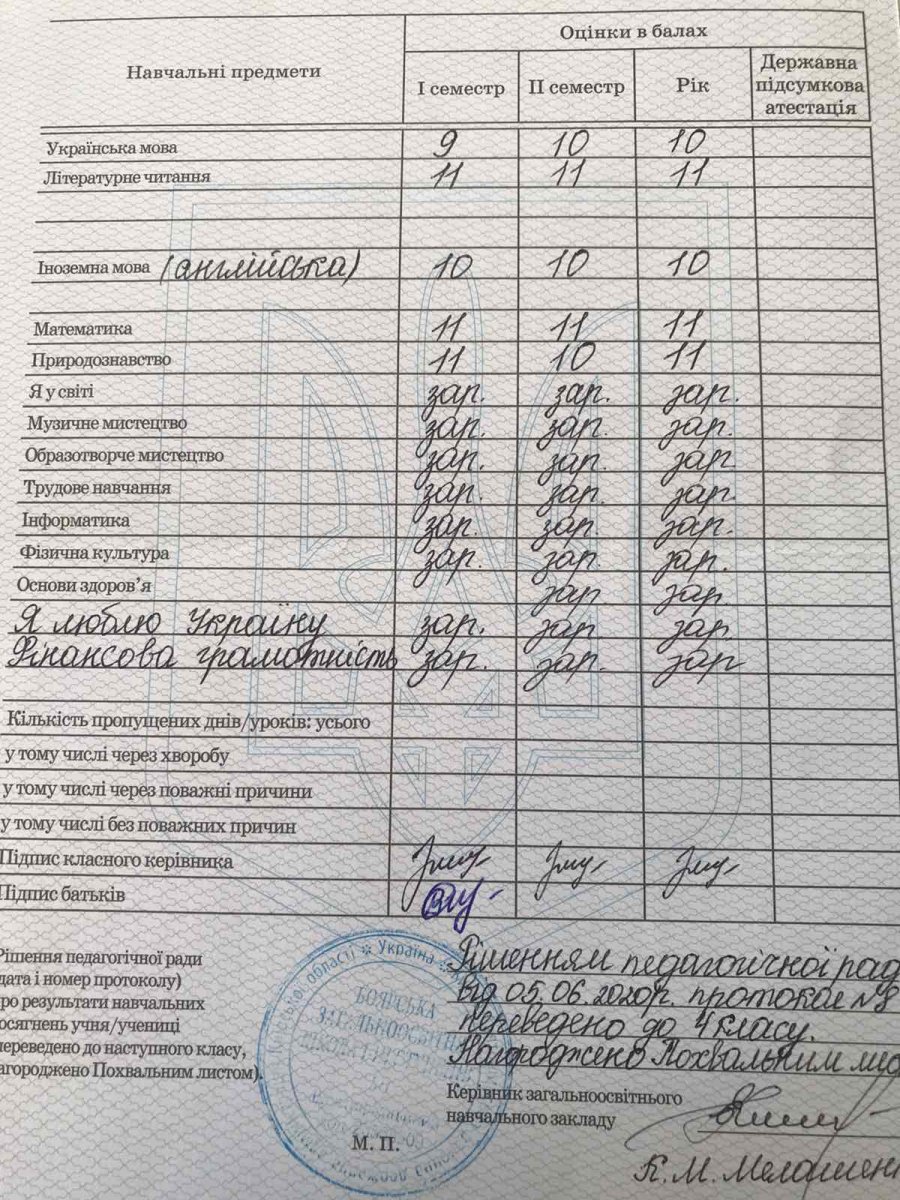 Навчальні предмети
Оцінки в балах
І семестр
ІІ семестр
Рік
Державна
підсумкова
атестація
Українська мова 9 10 10
Літературне читання 11 11 11
Іноземна мова (англійська) 10 10 10
Математика 11 11 11
Природознавство 11 10 11
Я у світі зар. зар. зар.
Музичне мистецтво зар. зар. зар.
Образотворче мистецтво зар. зар. зар
Трудове навчання зар. зар. зар.
Інформатика зар. зар зар.
Фізична культура зар. зар. зар.
Основи здоров'я зар. зар.
Я люблю Україну зар. зар зар
Фінансова грамотність зар. зар. зар
Кількість пропущених днів/уроків: усього
у тому числі через хворобу
у тому числі через поважні причини
у тому числі без поважних причин
Підпис класного керівника
Підпис батьків
Рішення педагогічної ради
(дата і номер протоколу)
про результати навчальних
досягнень учня/учениці
переведено до наступного класу,
нагороджено Похвальним листом).
Рішенням педагогічної рад
від 05.06.2020р. протокол №8
переведено до 4 класу.
Нагороджено Похвальним лис
Керівник загальноосвітнього
навчального закладу
К. М. Мелашен
М. П.
Україна
області
БОЯРСЬКА
ЗАГАЛЬНООСВІТНЯ